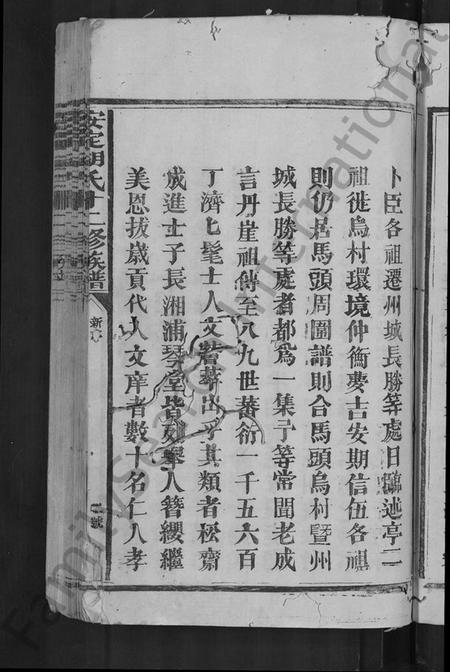 卜臣各祖遷州城長勝等處日讌述亭二
祖徙烏村環境仲衡慶吉安期信伍各祖
則仍居馬頭周圍譜則合馬頭烏村暨州
城長勝等處者都為一集予等常聞老成
言丹崖祖傳至八九世蕃衍一千五六百
丁濟匕髦士人文蔚華出乎其類者松齋
成進士子長湘浦琴堂皆列舉人簪纓繼
美恩拔歲貢代入文庠者數十名仁人孝
安定胡氏十二修族譜
新序
二號
FamilySearch International